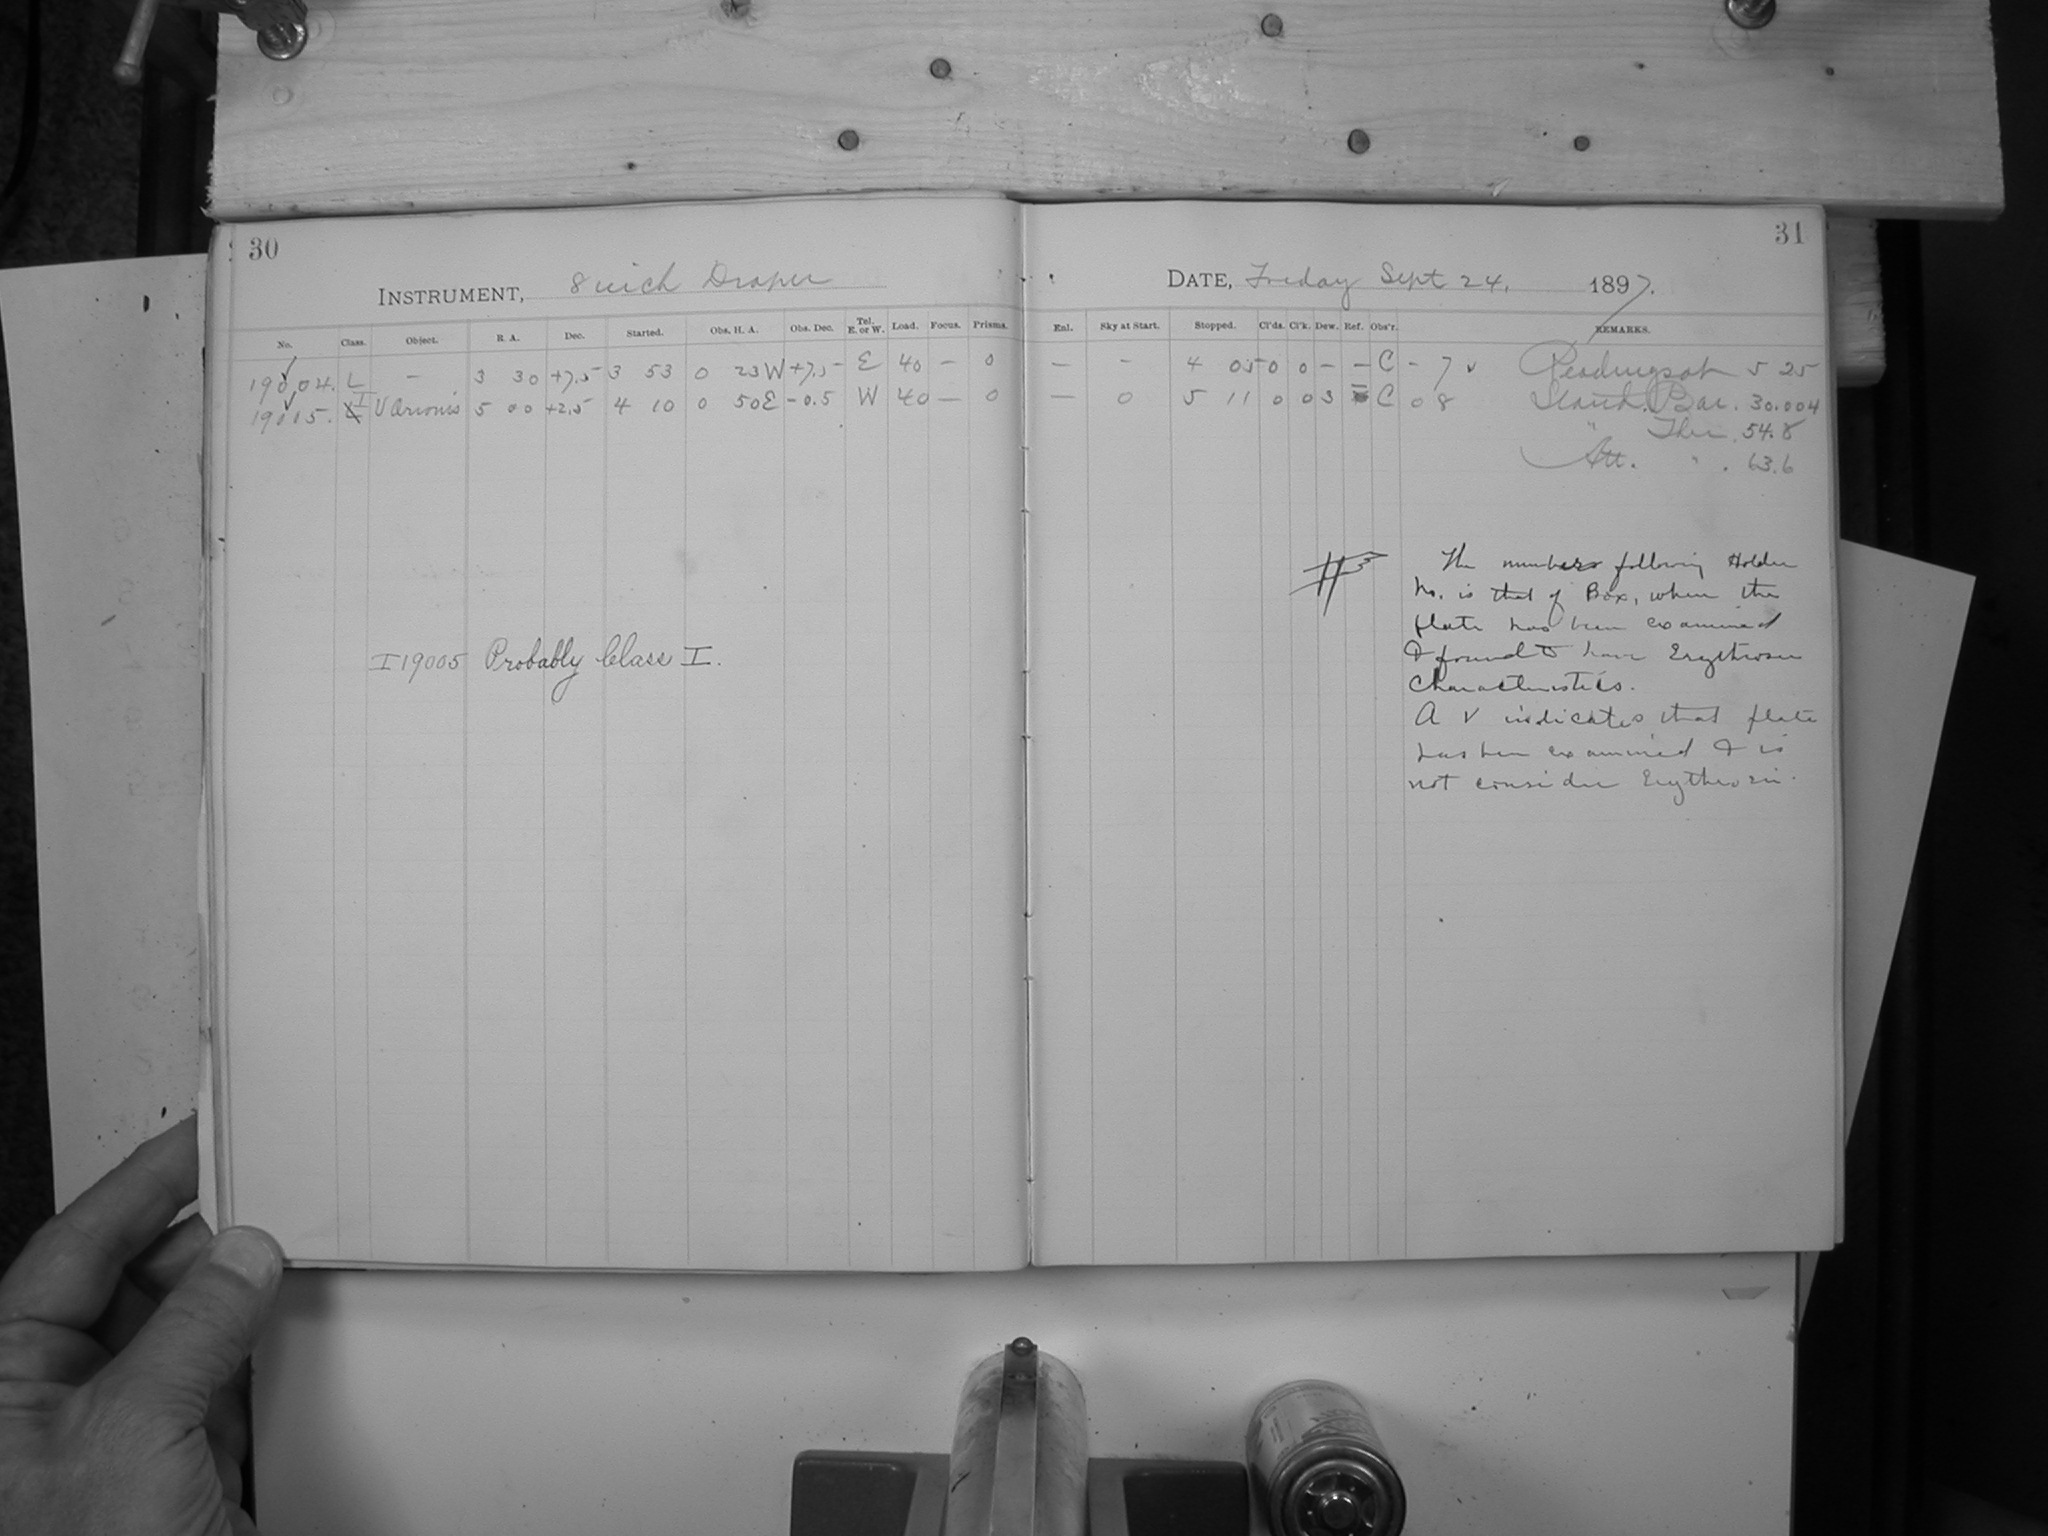 30
31
INSTRUMENT, 8 inch Draper
DATE, Friday Sept 24, 1897.
No. Class. Object. R. A. Dec. Started. Obs. H. A. Obs. Dec. Tel. E. or W. Load. Focus. Prisms. Enl. Sky at Start. Stopped. Cl'ds. Cl'k. Dew. Ref. Obs'r. REMARKS.
19004. L — 3 30 +7.5 3 53 0 23W +7.5 E 40 — 0 — - 4 05 0 0 — — C - 7 v Readings at 5 25
19005. I V Orionis 5 00 +2.5 4 10 0 50E -0.5 W 40 — 0 — 0 5 11 0 0 3 C 0 8 Stand. Bar. 30.004
" Ther. 54.8
Att. " . 63.6
The numbers following Holder
No. is that of Box, when the
plate has been examined
& found to have Erythrosin
characteristics.
A V indicates that plate
has been examined & is
not consider Erythrosin.
I 19005 Probably Class I.